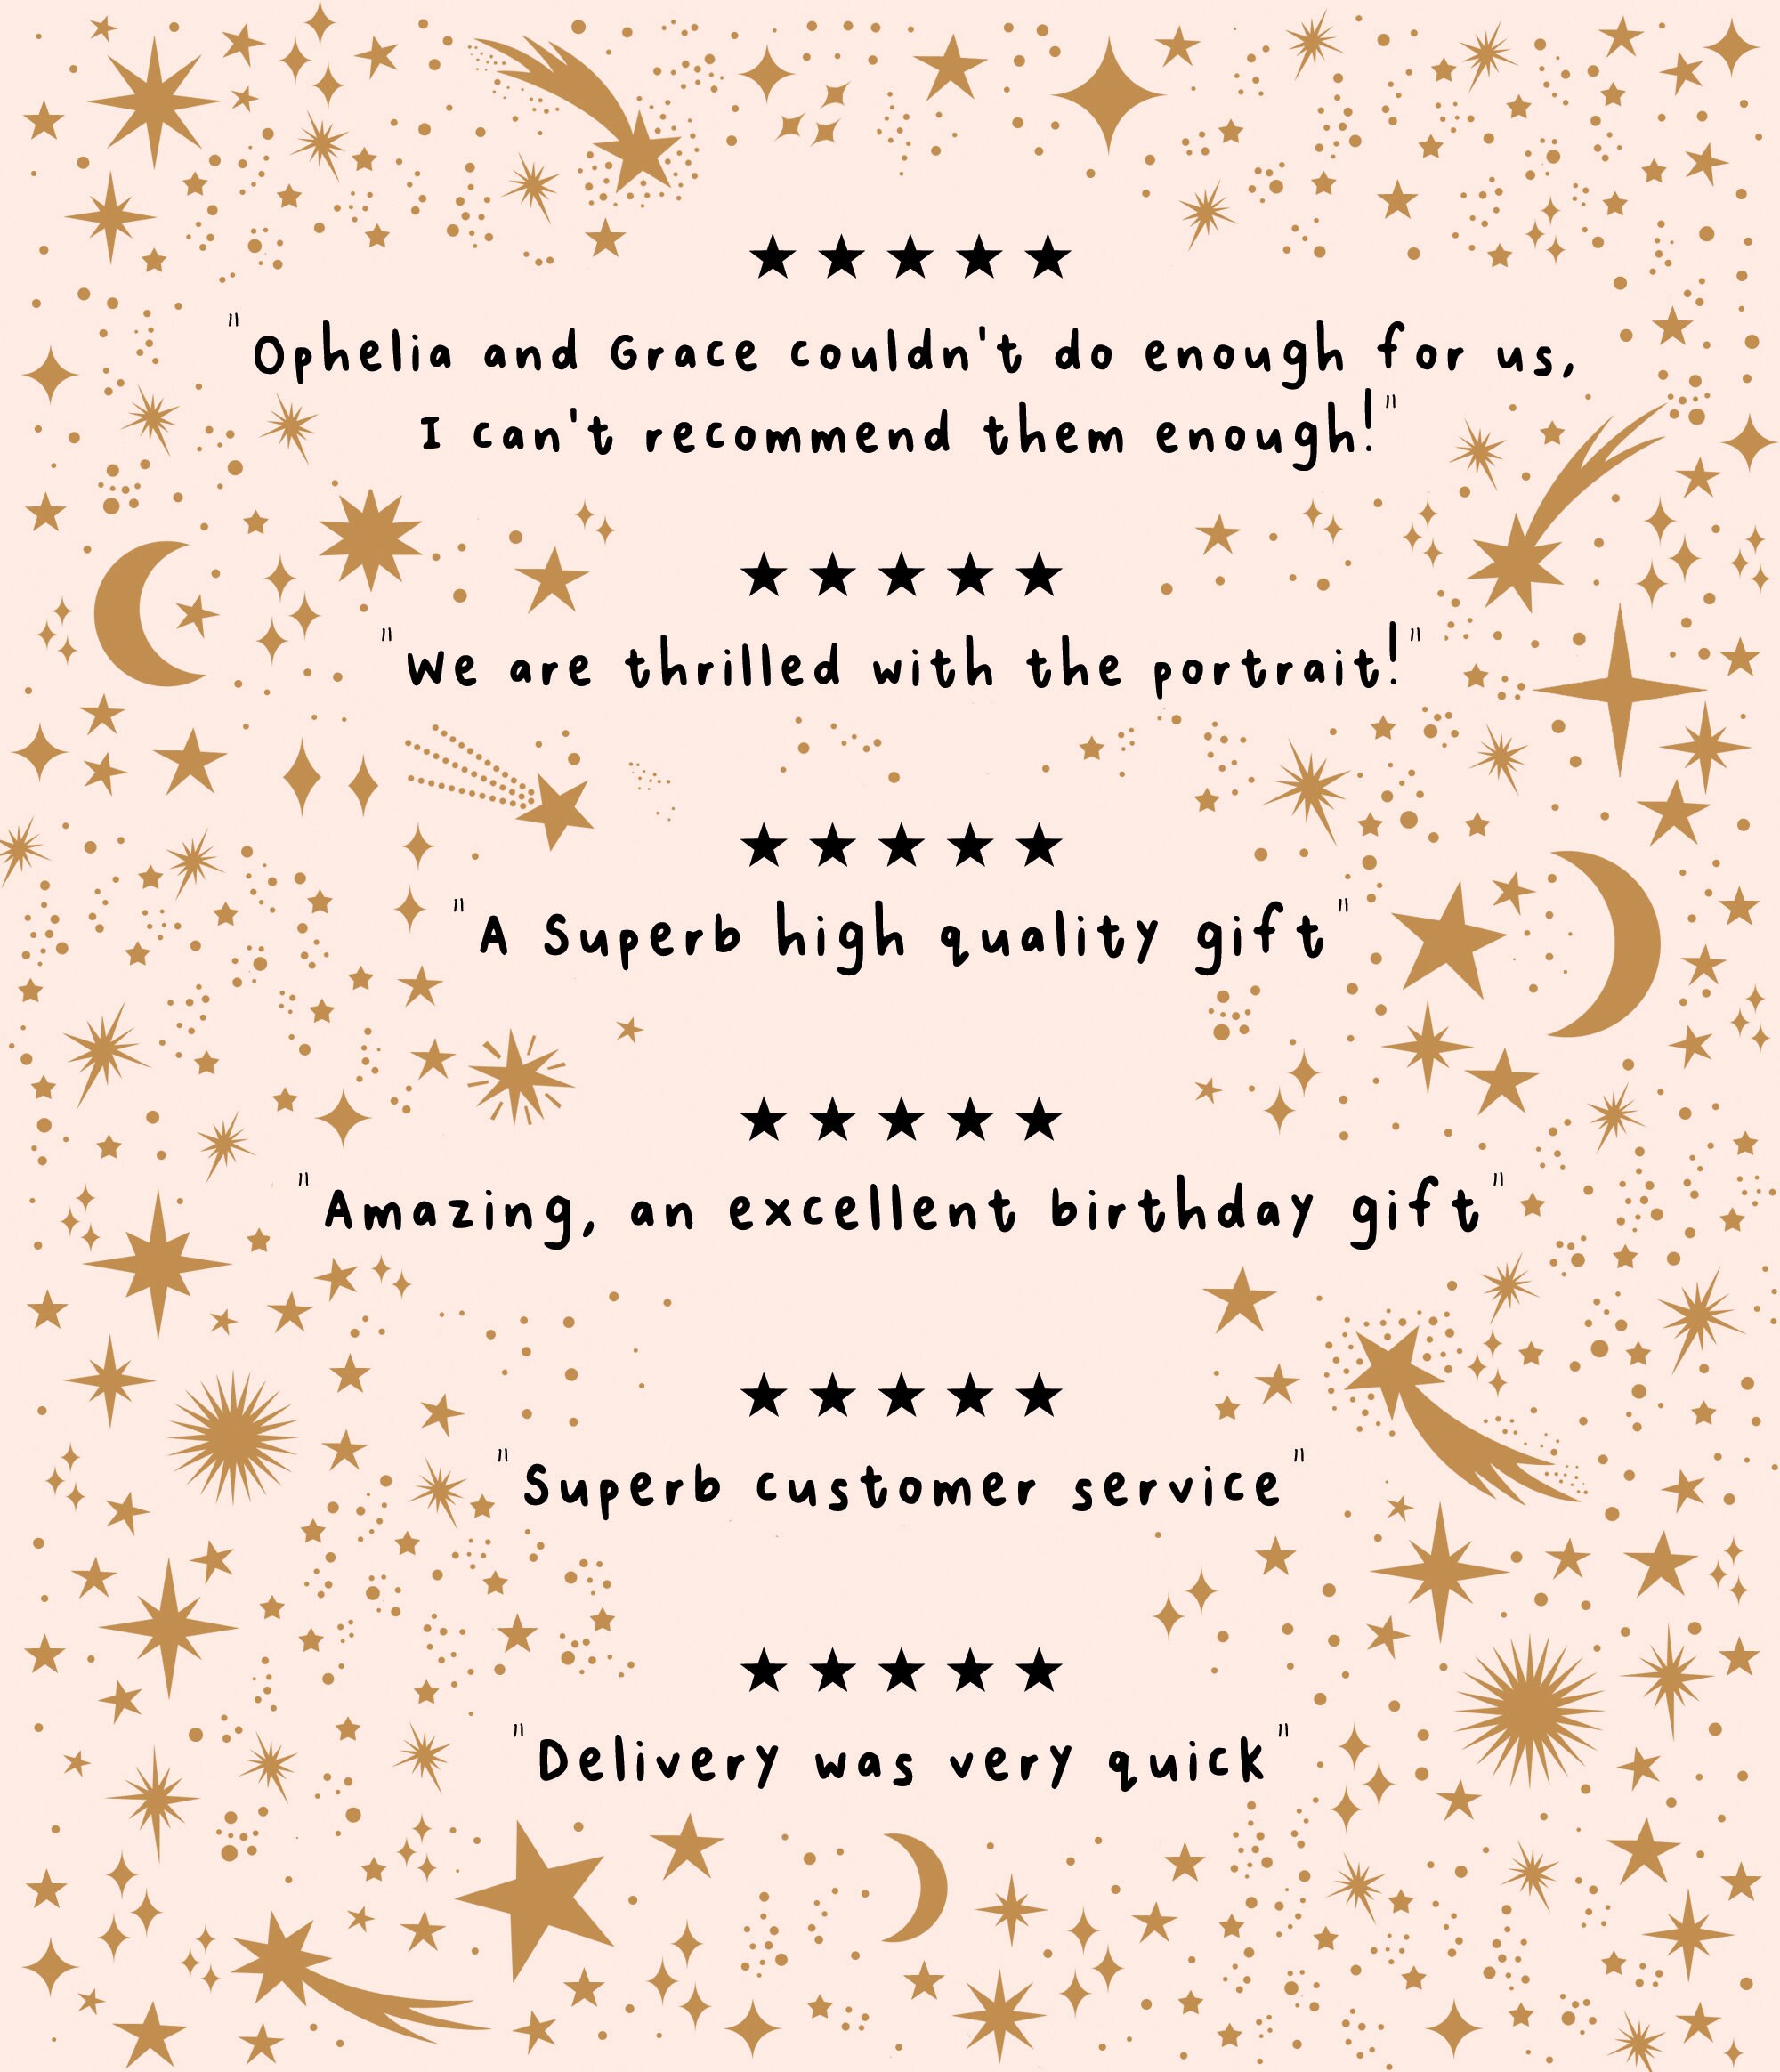 "Ophelia and Grace couldn't do enough for us,
I can't recommend them enough!"
"We are thrilled with the portrait!"
"A Superb high quality gift"
"Amazing, an excellent birthday gift"
"Superb customer service"
"Delivery was very quick"